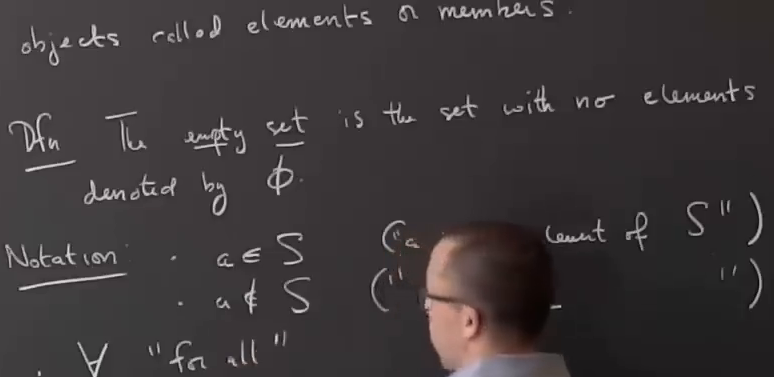 objects called elements or members.
Dfn The empty set is the set with no elements
denoted by ϕ.
Notation: · a ∈ S ("a of S")
· a ∉ S (" ")
· ∀ "for all"